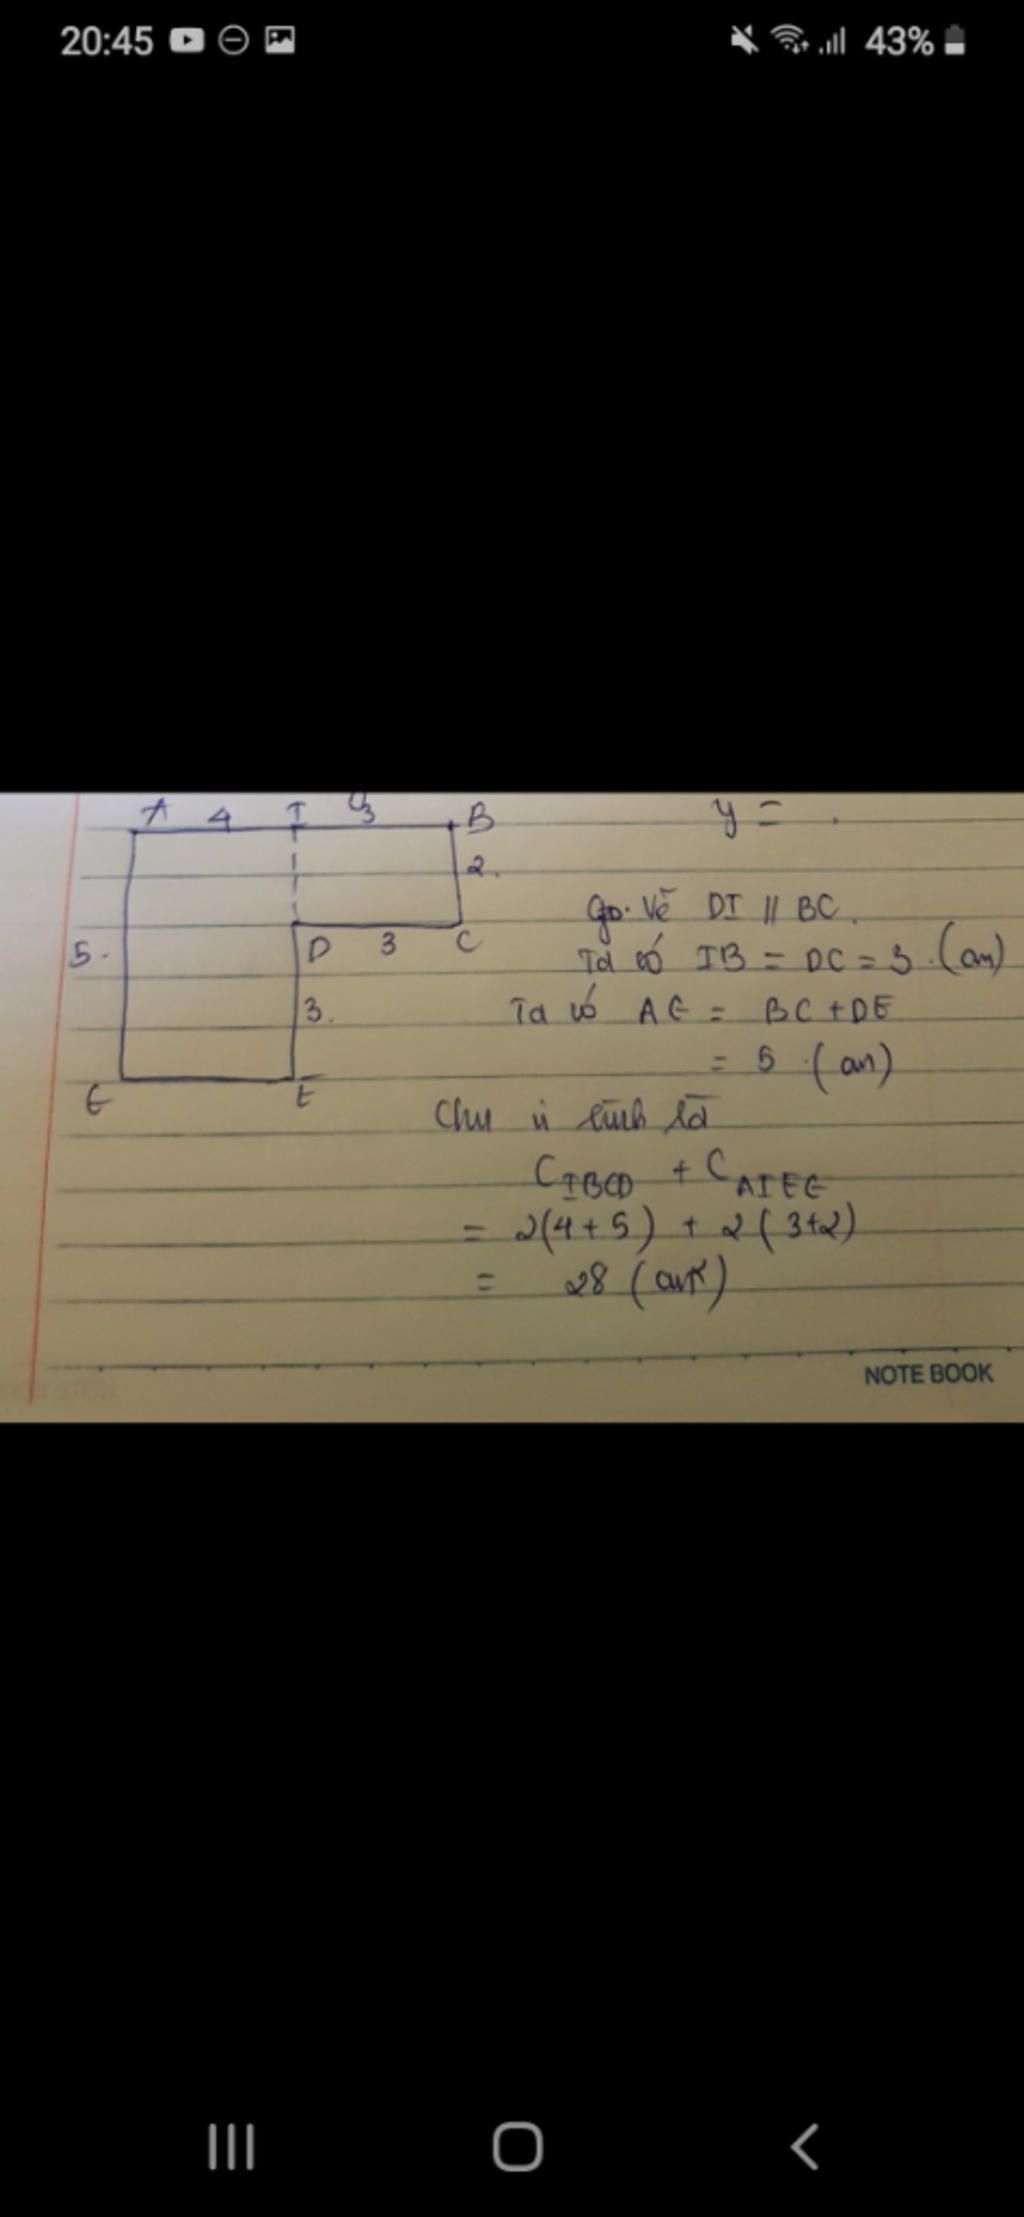 20:45 43%
A 4 I 3 B y = .
2.
Gọi. Vẽ DI // BC.
5. D 3 C Ta có IB = DC = 3. (cm)
3. Ta có AG = BC + DE
= 5 . (cm)
G E
Chu vi hình là
C IBCD + C AIEG
= 2(4+5) + 2(3+2)
= 28 (cm)
NOTE BOOK